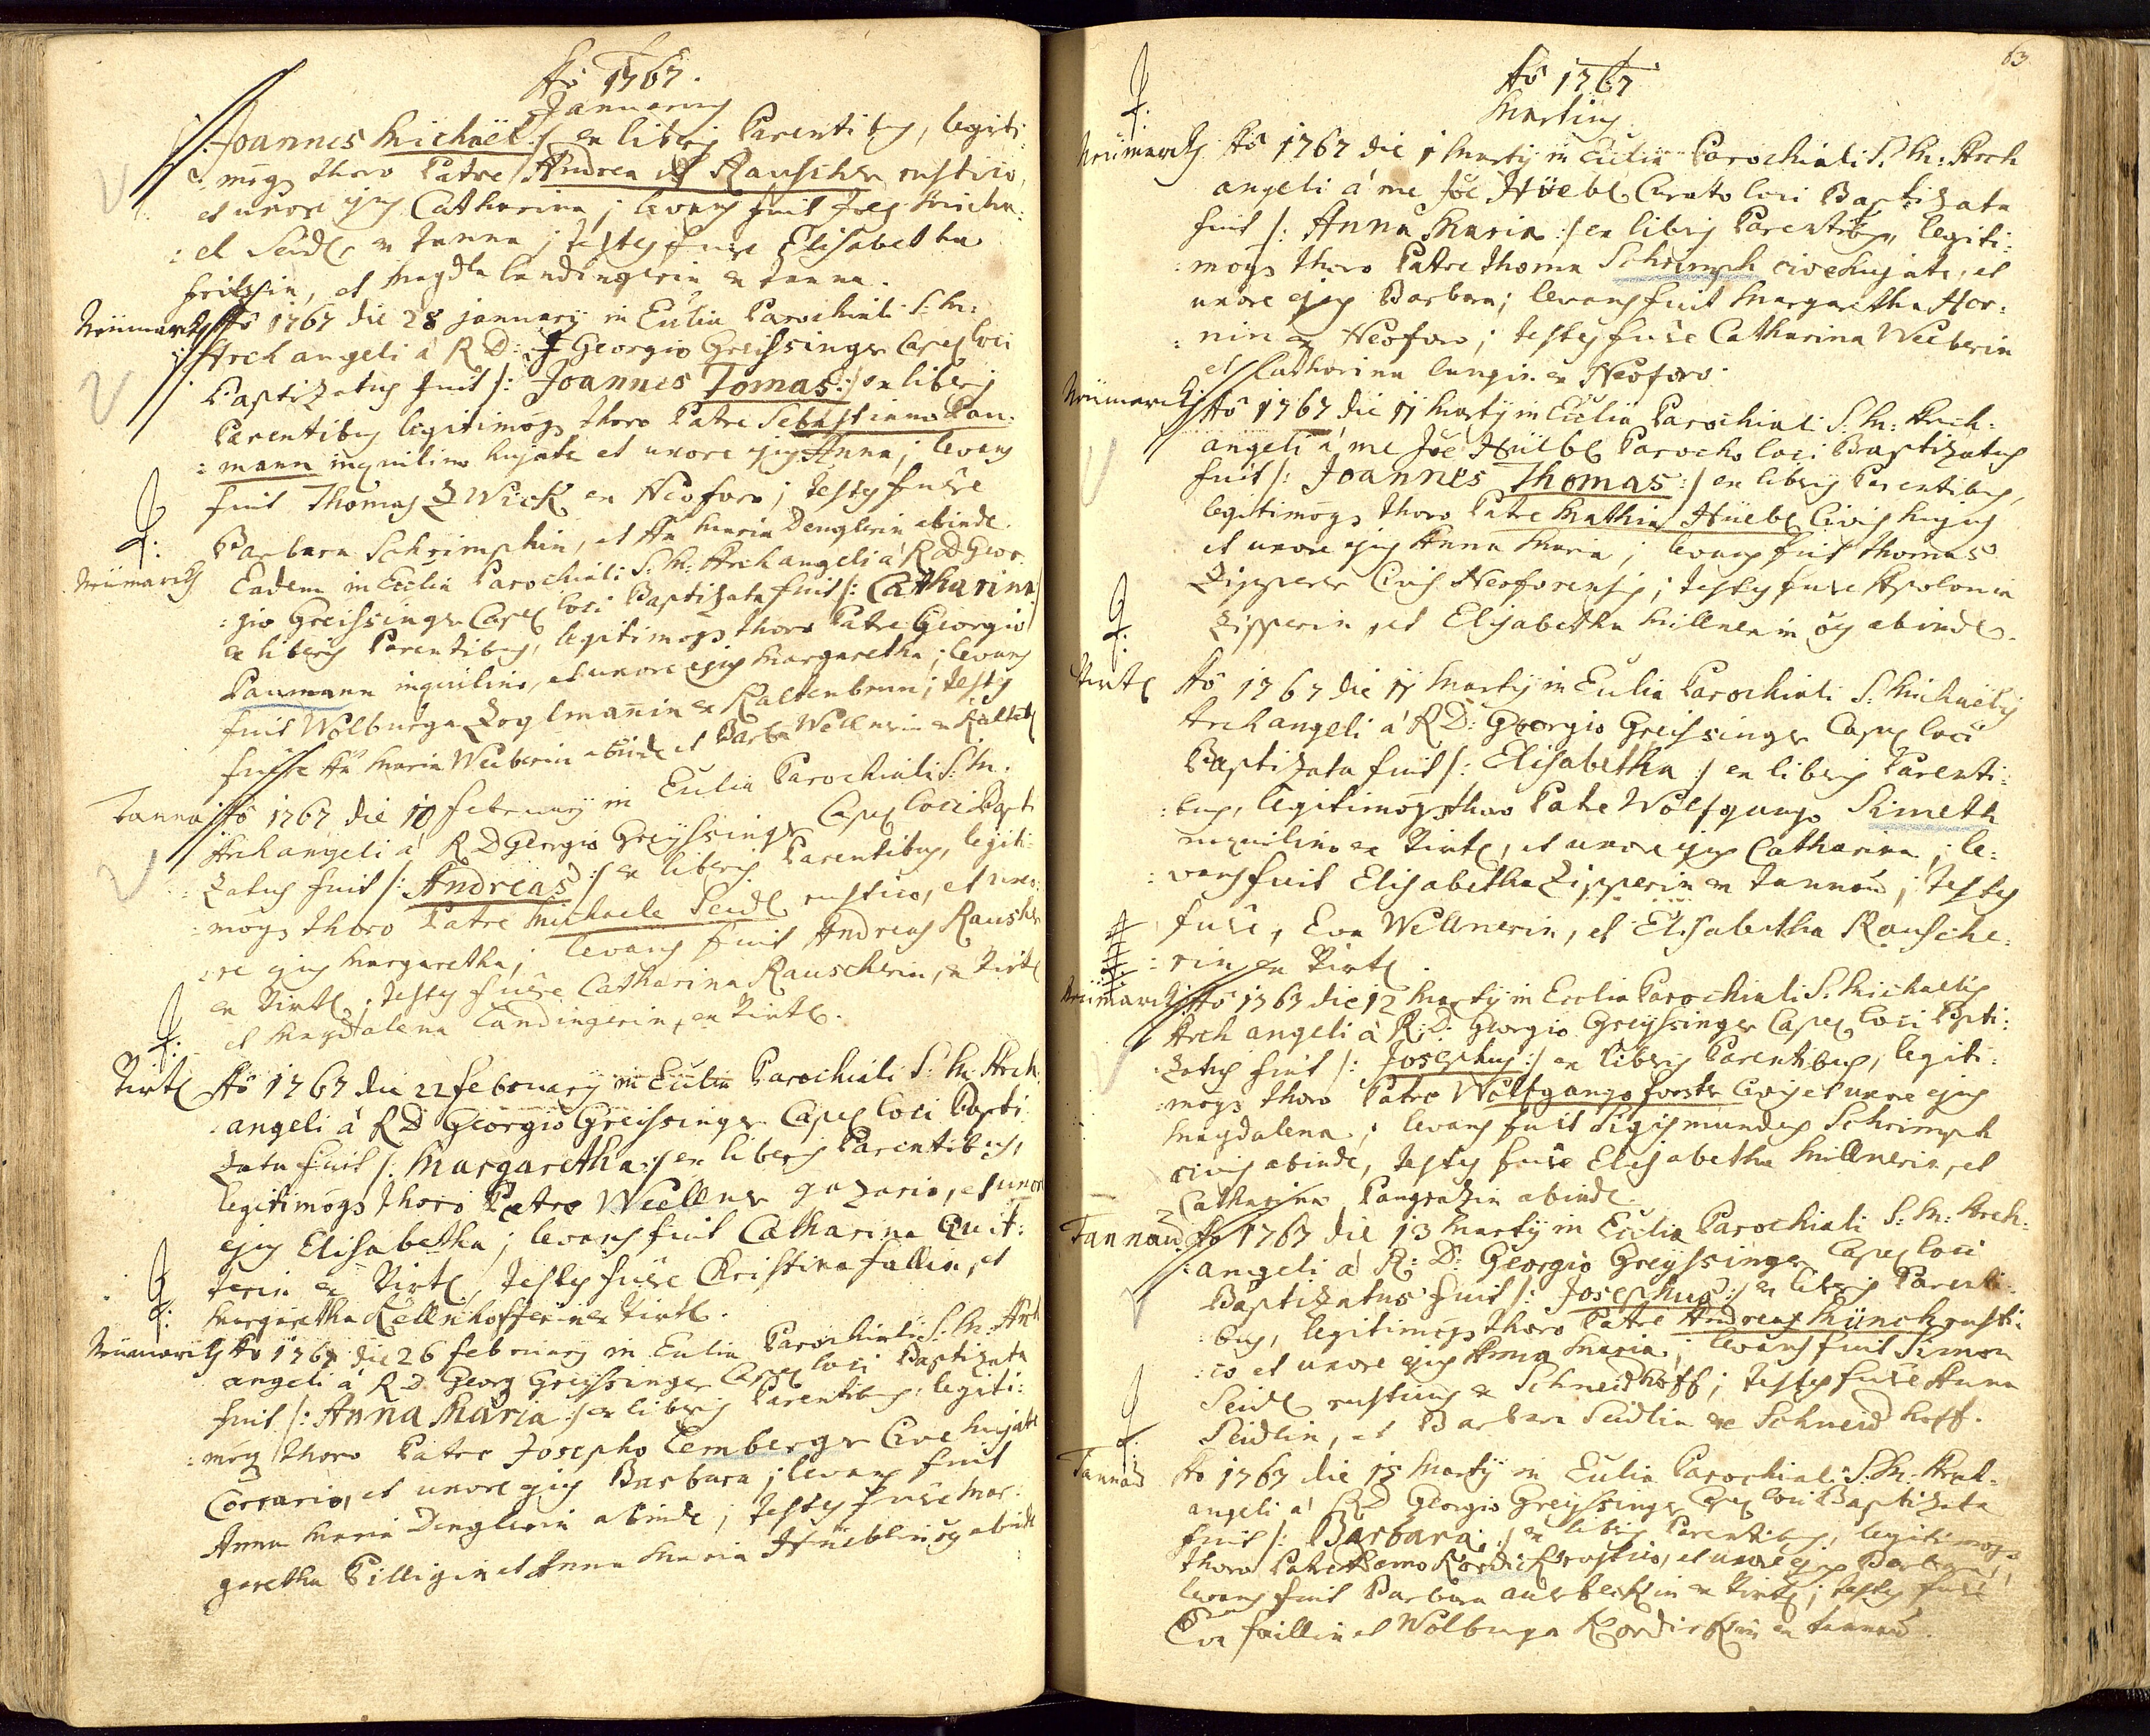 Aõ 1767.
Januarius
Joannes Michaël :/ ex liberis Parentibus, legiti:
:moqs thoro Patre Andrea Rauscher rustico,
et uxore ejus Catharina; levans fuit Joes Micha:
:el Seidl ex Tanna; testes fuere Elisabetha
et Magdla Landingerin ex Tanna.
Neümarck Aõ 1767 die 28 january in Ecclia Parochiali S: M:
Archangeli á R D: Georgio Greissinger Capel loci
Baptizatus fuit /: Joannes Tomas :/ ex liberis
Parentibus legitimoqs thoro Patre Sebastiano Pau:
:mann inquilino hujate et uxore ejus Anna; levans
fuit Thomas Zwick ex Neoforo; testes fuere
Barbara Schrimphin, et Aña Maria Denglerin abinde.
Neümarck Eadem in Ecclia Parochiali S: M: Archangeli á R D Geor:
:gio Greissinger Capel loci Baptizata fuit /: Catharina :/
ex liberis Parentibus, legitimoqs thoro Patre Georgio
Paumann inquilino, et uxore ejus Margaretha; levans
fuit Wolburga Zoglmanin ex Kaltenbrun; testes
fuere Aña Maria Weiberin abinde et Barba Wellnerin ex
Tanna Aõ 1767 die 10 february in Ecclia Parochiali S: M.
Archangeli á R D Georgio Greyssinger Capel loci Bapti
zatus fuit /: Andreas :/ ex liberis Parentibus, legiti:
:moqs thoro Patre Michaele Seidl rustico, et uxo:
:re ejus Margaretha; levans fuit Andreas Rauscher
ex Tirtl; testes fuere Catharina Rauscherin, ex Tirtl
et Magdalena Landingerin, ex Tirtl.
Tirtl Aõ 1767 die 22 february in Ecclia Parochiali S: M: Arch:
:angeli á R D Georgio Greissinger Capel loci Bapti
zata fuit /: Margaretha :/ ex liberis Parentibus,
legitimoqs thoro Petro Wellner gazario, et uxore
ejus Elisabetha; levans fuit Catharina Quit:
terin ex Tirtl, testes fuere Christina fallin, et
Margaretha Kellnhofferin ex Tirtl.
Neümarck Aõ 1767 die 26 february in Ecclia Parochiali S: M: Arch
angeli á R D Georg Greyssinger Capel loci Baptizata
fuit /: Anna Maria :/ ex liberis Parentibus, legiti:
:moq thoro Patre Josepho Lemberger Cive hujate
Corrario, et uxore ejus Barbara; levans fuit
Anna Maria Denglerin abinde; testes fuere Mar:
garetha Pilligin et Anna Maria Hüeblin abinde
63
Aõ 1767
Martius
Neümarck Aõ 1767 die 1 Marty in Ecclia Parochiali S: M: Arch
angeli á me Joe Hüebl Curato loci Baptizata
fuit /: Anna Maria :/ ex libris Parentibus, legiti:
:moqs thoro Patre thoma Schrimph cive hujate, et
uxore ejus Barbara; levans fuit Margaretha Hor:
:nin ex Neoforo; testes fuere Catharina Weiberin
et Catharina Langin ex Neoforo.
Neümarck Aõ 1767 die 11 Marty in Ecclia Parochiali S: M: Arch:
angeli á me Joe Hüebl Parocho loci Baptizatus
fuit /: Joannes Thomas :/ ex libris Parentibus,
legitimoqs thoro Patre Mathia Hüebl Civis hujus
et uxore ejus Anna Maria; levans fuit thomas
Zipperer Civis Neoforensis; testes fuere Apolonia
Zipperin, et Elisabetha Millnerin abinde.
Tirtl Aõ 1767 die 11 Marty in Ecclia Parochiali S: Michaelis
Archangeli á R D: Georgio Greissinger Capel loci
Baptizata fuit /: Elisabetha :/ ex liberis Parenti:
:bus, legitimoqs thoro Patre Wolfgango Simeth
inquilino ex Tirtl, et uxore ejus Catharina; le:
:vans fuit Elisabetha Zipperin ex Tannad; testes
fuere, Eva Wellnerin, et Elisabetha Rausche:
:rin ex Tirtl.
Neümarck Aõ 1767 die 12 Marty in Ecclia Parochiali S: Michaelis
Archangeli á R: D: Georgio Greyssinger Capel loci Bapti:
zatus fuit /: Josephus :/ ex libris Parentibus, legiti:
:moqs thoro Patre Wolfgango forster Civis et uxore ejus
Magdalena; levans fuit Sigismundus Schrimph
civis abinde, testes fuere Elisabetha Millnerin, et
Catharina Pangratzin abinde.
Tannad Aõ 1767 die 13 Marty in Ecclia Parochiali S: M: Arch:
:angeli á R: D: Georgio Greyssinger Capel loci
Baptizatus fuit /: Josephus :/ ex libris Parenti
bus, legitimoqs thoro Patre Andreas Münch rusti:
:co et uxore ejus Anna Maria; levans fuit Simon
Seidl rusticus ex Schneidhoff; testes fuere Anna
Seidlin, et Barbara Seidlin ex Schneidhoff.
Tannad Aõ 1767 die 15 Marty in Ecclia Parochiali S: M: Arch:
angeli á R D Georgio Greyssinger Capel loci Baptizata
fuit /: Barbara :/ ex libris Parentibus, legitimoqs
thoro Patre Adamo Kordick rustico, et uxore ejus Barbara;
levans fuit Barbara auerbeckin ex Tirtl; testes fuere
Eva faillin et Wolburga Kordickin ex Tannad.